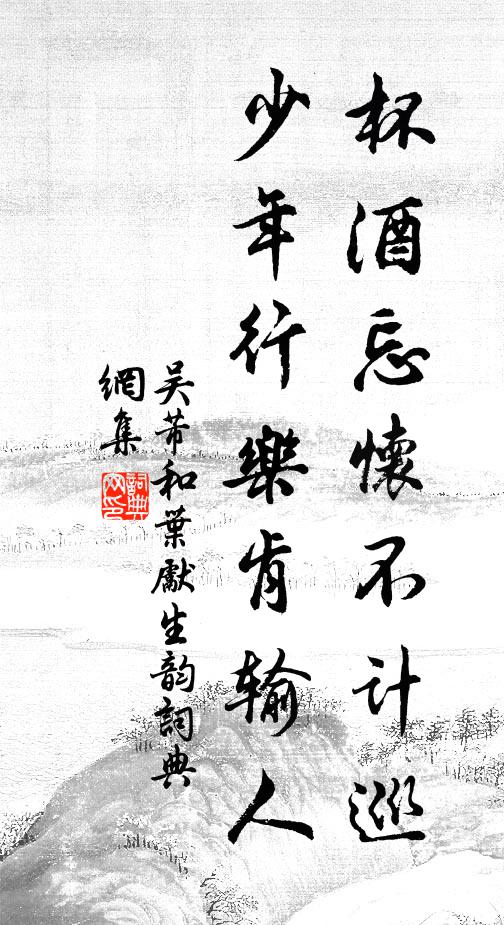 杯酒忘懷不計巡
少年行樂肯輸人
吴芾和葉獻生韵詞典
網集
詞典
网印